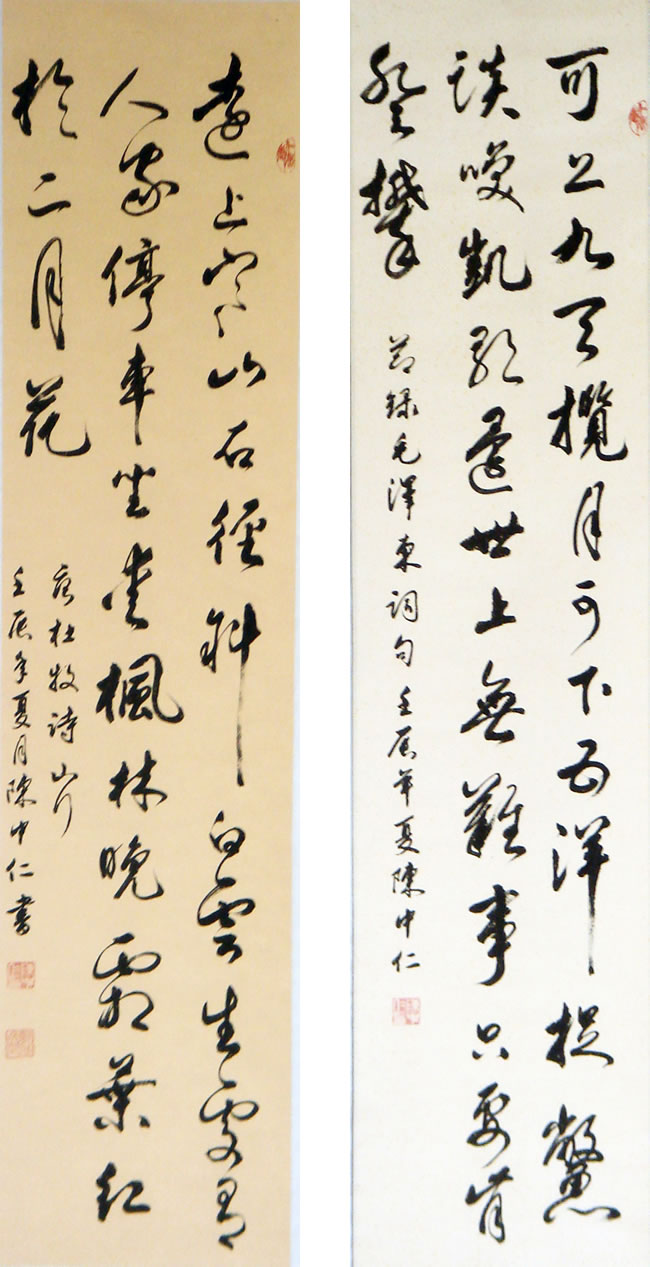 可上九天攬月可下五洋捉鱉
談咲凱歌還世上無難事只要肯
登攀
節錄毛澤東詞句壬辰年夏陳中仁
遠上寒山石徑斜白雲生處有
人家停車坐愛楓林晚霜葉紅
於二月花
唐杜牧詩山行
壬辰年夏月陳中仁書